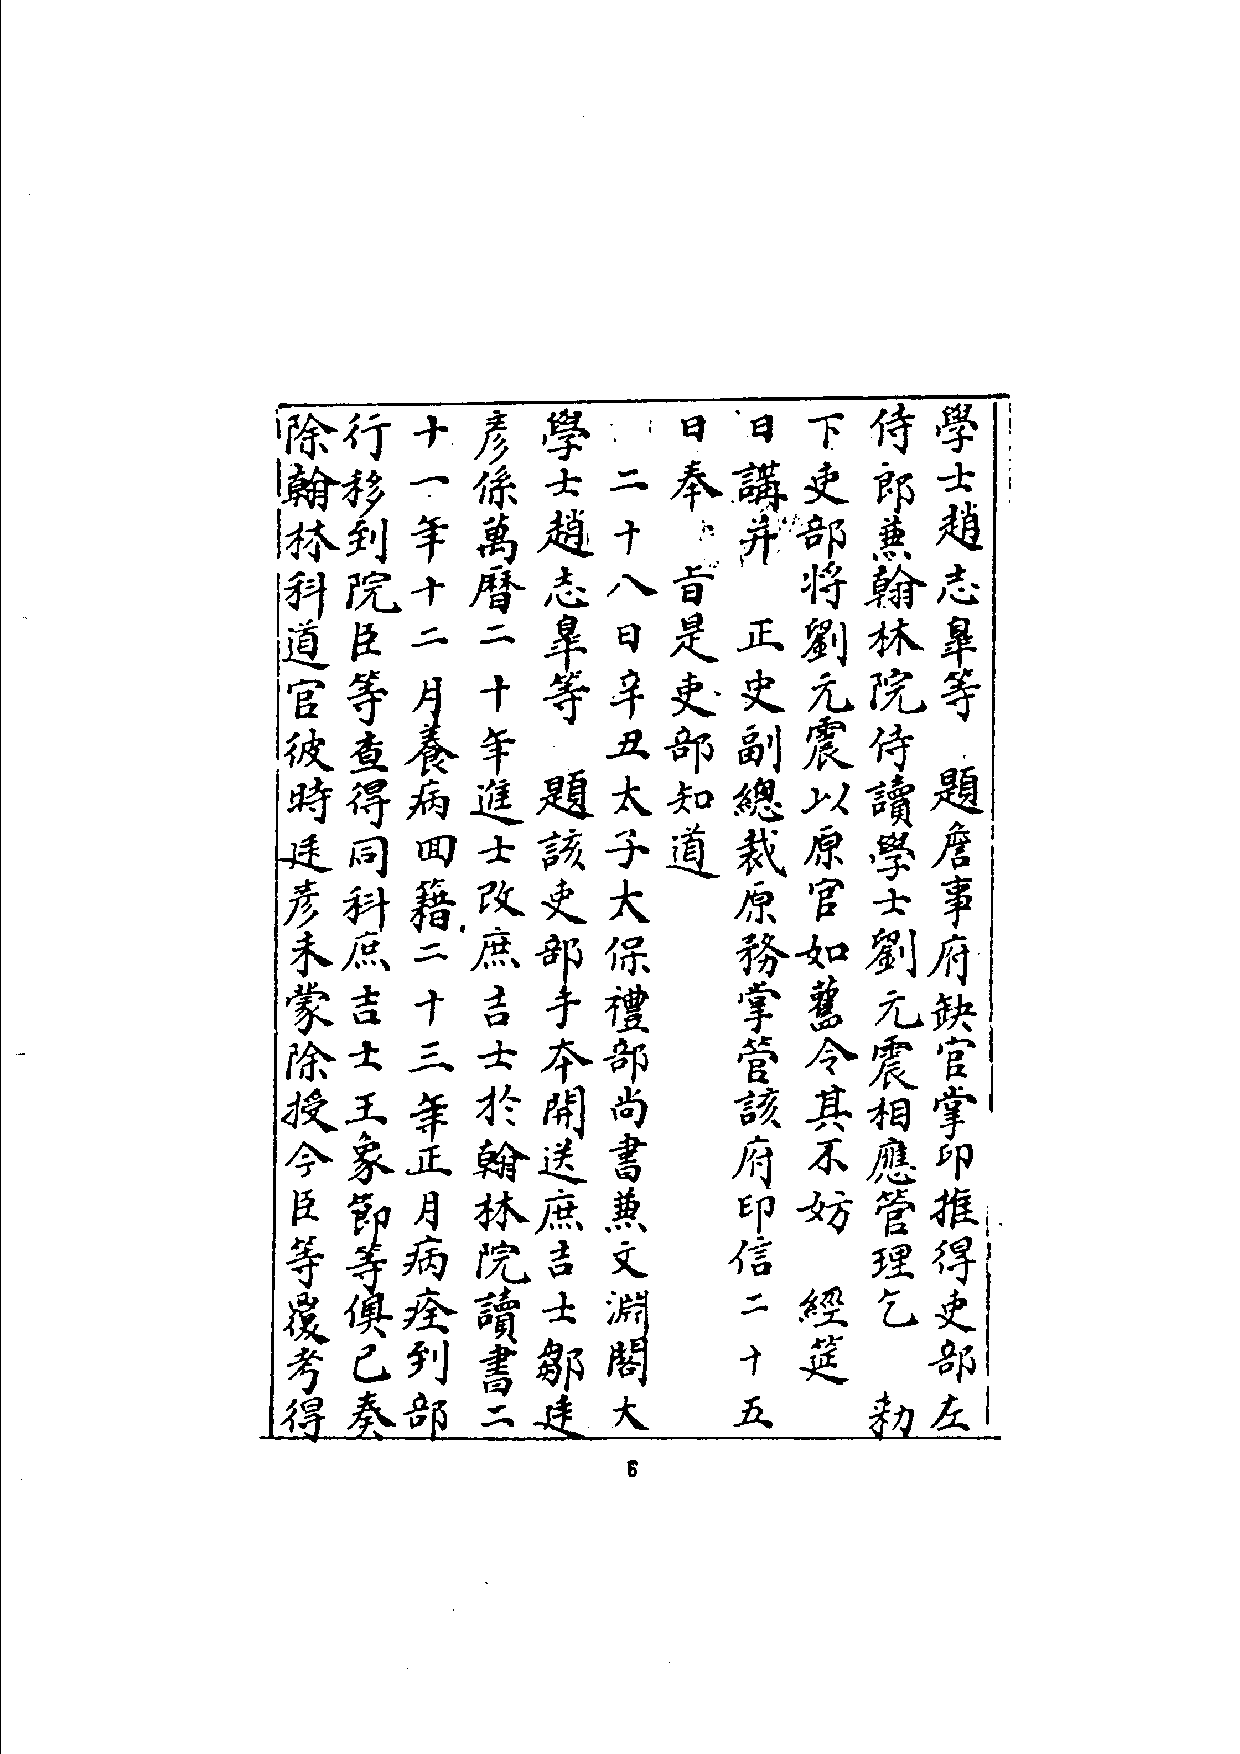 學士趙志皐等　題詹事府缺官掌印推得吏部左
侍郎兼翰林院侍讀學士劉元震相應管理乞　勑
下吏部將劉元震以原官如舊令其不妨　經筵
日講并　正史副總裁原務掌管該府印信二十五
日奉　旨是吏部知道
二十八日辛丑太子太保禮部尚書兼文淵閣大
學士趙志皐等　題該吏部手本開送庶吉士鄒廷
彥係萬曆二十年進士改庶吉士於翰林院讀書二
十一年十二月養病回籍二十三年正月病痊到部
行移到院臣等查得同科庶吉士王象節等俱已奏
除翰林科道官彼時廷彥未蒙除授今臣等覆考得
6